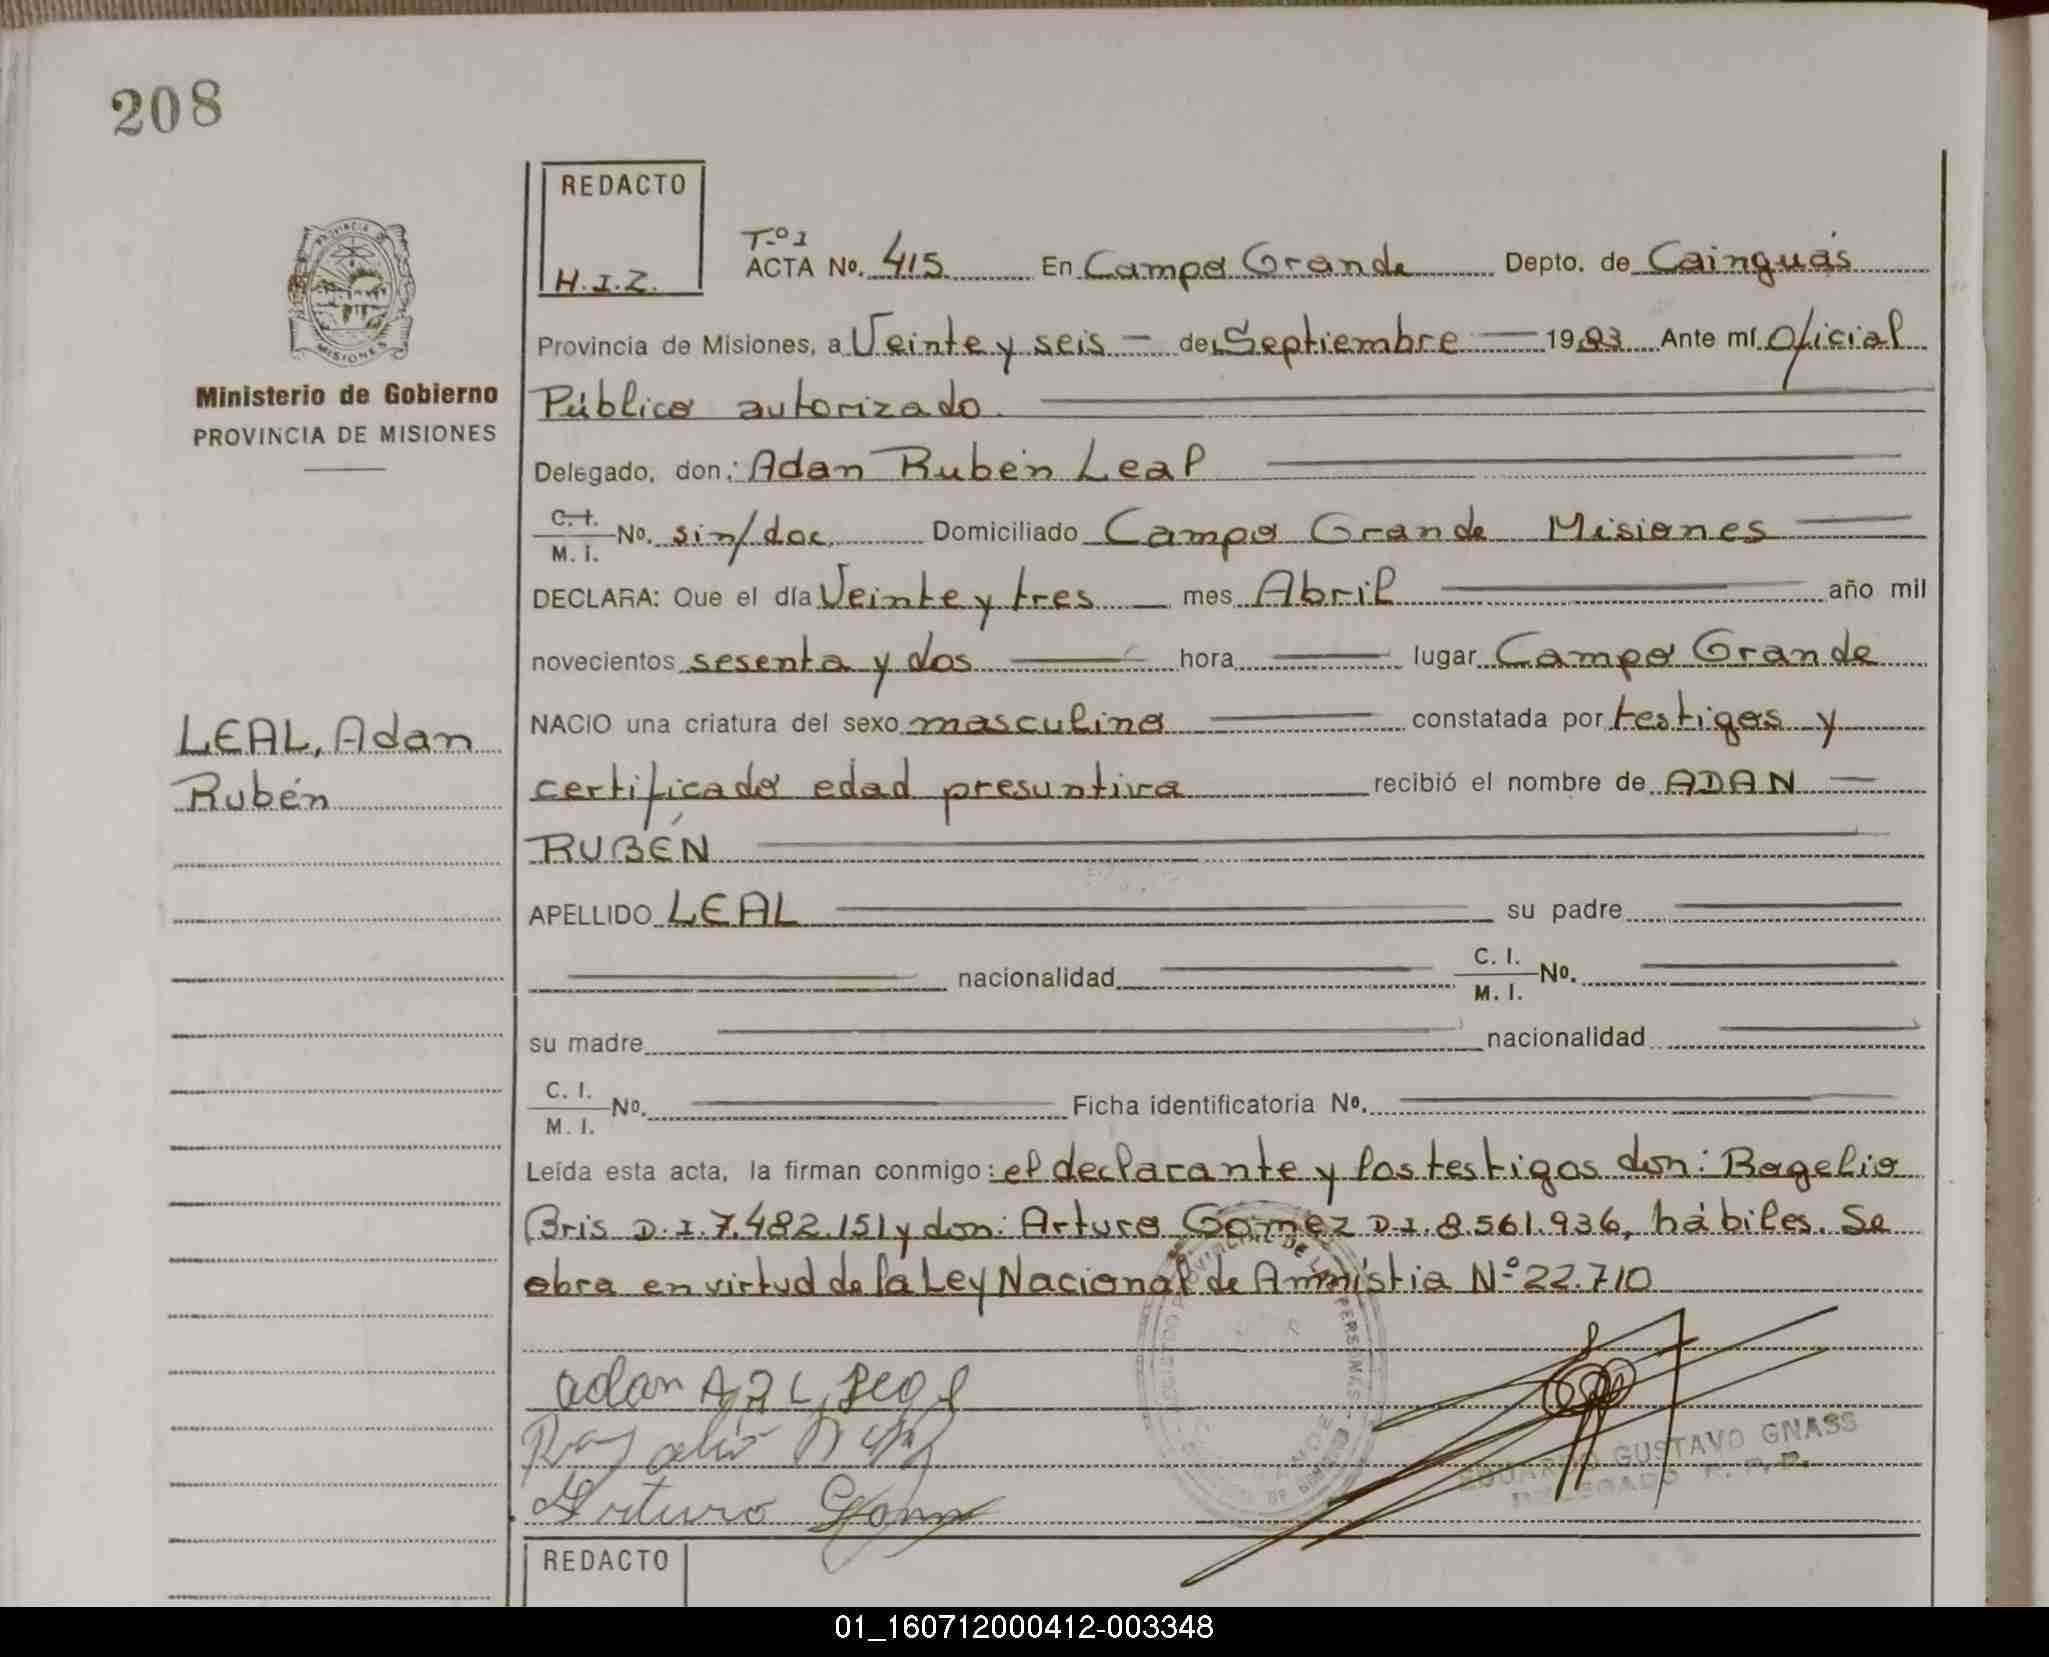 208
REDACTO
H.I.Z.
Tº 1
ACTA No. 415 En Campo Grande Depto. de Cainguás
Provincia de Misiones, a Veinte y seis de Septiembre 1983 Ante mí Oficial
Público autorizado
PROVINCIA DE MISIONES
Ministerio de Gobierno
PROVINCIA DE MISIONES
Delegado, don: Adan Rubén Leal
C. I.
M. I. No. sin/doc. Domiciliado Campo Grande Misiones
DECLARA: Que el día Veinte y tres mes Abril año mil
novecientos sesenta y dos hora lugar Campo Grande
LEAL, Adan
Rubén
NACIO una criatura del sexo masculino constatada por testigos y
certificado edad presuntiva recibió el nombre de ADAN
RUBÉN
APELLIDO LEAL su padre
nacionalidad C. I.
M. I. No.
su madre nacionalidad
C. I.
M. I. No. Ficha identificatoria No.
Leída esta acta, la firman conmigo: el declarante y los testigos don: Rogelio
Bris D.I. 7.482.151 y don: Arturo Gomez D.I. 8.561.936, hábiles. Se
obra en virtud de la Ley Nacional de Amnistia Nº 22.710
adan
Arturo
EDUARDO GUSTAVO GNASS
DELEGADO R. P. P.
REDACTO
01_160712000412-003348